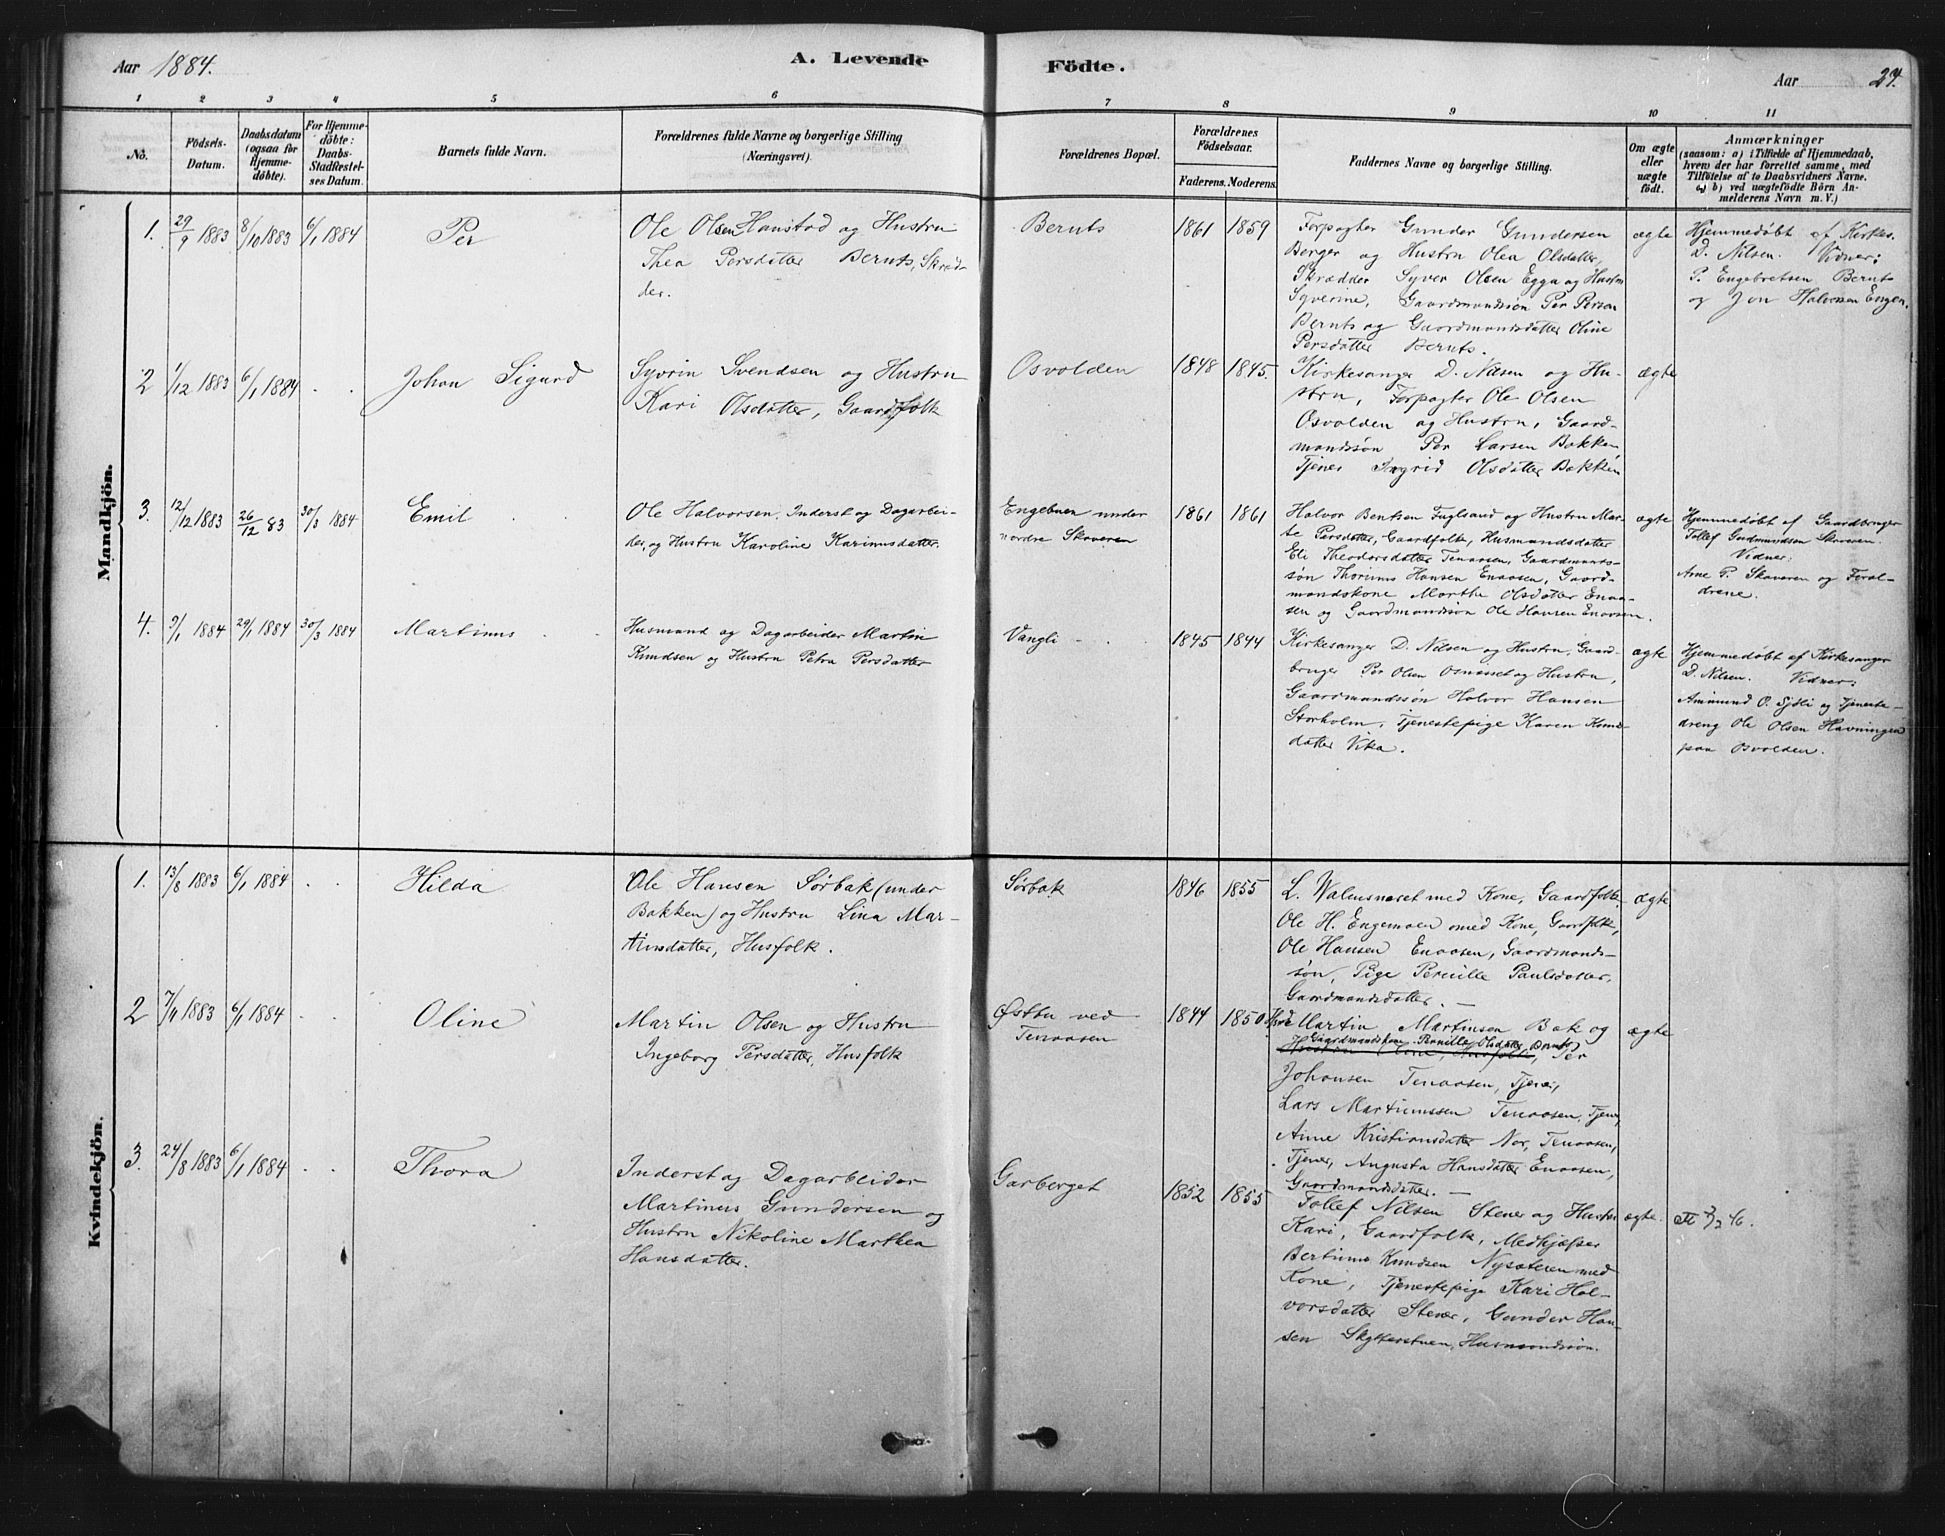 Aar 1884.
A. Levende
Födte.
Aar
27.
1 2 3 4 5 6 7 8 9 10 11
No.
Födsels-
Datum.
Daabsdatum
(ogsaa for
Hjemme-
döbte).
For Hjemme-
döbte:
Daabs-
Stadfæstel-
ses Datum.
Barnets fulde Navn.
Forældrenes fulde Navne og borgerlige Stilling
(Næringsvei).
Forældrenes Bopæl.
Forældrenes
Födselsaar.
Faderens. Moderens.
Faddernes Navne og borgerlige Stilling.
Om ægte
eller
uægte
födt.
Anmærkninger
(saasom: a) i Tilfælde af Hjemmedaab,
hvem der har forrettet samme, med
Tilföielse af to Daabsvidners Navne.
og b) ved uægtefödte Börn An-
melderens Navn m. V.)
Mandkjön.
1. 29/9 1883 8/10 1883 6/1 1884
Per
Ole Olsen Hanstad og Hustru
Thea Persdatter Bernts, Skræd-
der.
Bernts
1861 1859
Forpagter Gunder Gundersen
Berger og Hustru Olea Olsdatter,
Skrædder Syver Olsen Egga og Hustru
Syverine, Gaardmandssön Per Persen
Bernts og Gaardmandsdatter Oline
Persdatter Bernts.
ægte
Hjemmedøbt af Kirkes.
D. Nilsen. Vidner:
P. Engebretsen Bernts
og Jon Halvorsen Engen.
2 1/12 1883 6/1 1884
Johan Sigurd
Syvrin Svendsen og Hustru
Kari Olsdatter, Gaardfolk
Osvolden
1848 1845.
Kirkesanger D. Nilsen og Hu-
stru, Forpagter Ole Olsen
Osvolden og Hustru, Gaard-
mandssön Per Larsen Bakken,
Tjener Ingrid Olsdatter Bakken
ægte
3. 12/12 1883 26/12 83 30/3 1884
Emil
Ole Halvorsen, Inderst og Dagarbei-
der, og Hustru Karoline Karinusdatter.
Engebuen under
nordre Skaveren
1861 1861
Halvor Bentsen Fuglsand og Hustru Mar-
te Persdatter, Gaardfolk, Husmandsdatter
Eli Theodorsdatter Tenaasen, Gaardmands-
søn Thorinus Hansen Enaasen, Gaard-
mandskone Marthe Olsdatter Enaa-
sen og Gaardmandssøn Ole Hansen Enaasen.
ægte
Hjemmedøbt af Gaardbruger
Tollef Gudmundsen Skaveren.
Vidner:
Arne P. Skaveren og Foræl-
drene.
4. 9/1 1884 29/1 1884 30/3 1884
Martinus
Husmand og Dagarbeider Martin
Knudsen og Hustru Petra Persdatter
Vangli
1845 1844
Kirkesanger D. Nilsen og Hustru, Gaard-
bruger Per Olsen Osnesset og Hustru,
Gaardmandssøn Halvor Hansen
Storholm, Tjenestepige Karen Knuds-
datter Vika.
ægte
Hjemmedøbt af Kirkesanger
D. Nilsen. Vidner:
Ammund O. Sjøli og Tjeneste-
dreng Ole Olsen Havningen
paa Osvolden.
Kvindekjön.
1. 13/8 1883 6/1 1884
Hilda
Ole Hansen Sørbak (under
Bakken) og Hustru Lina Mar-
tinsdatter, Husfolk.
Sørbak
1846 1855
L. Walmsnæset med Kone, Gaardfolk,
Ole H. Engemoen med Kone, Gaardfolk,
Ole Hansen Enaasen, Gaardmands-
søn, Pige Pernille Paulsdatter,
Gaardmandsdatter.
ægte
2 7/11 1883 6/1 1884
Oline
Martin Olsen og Hustru
Ingeborg Persdatter, Husfolk
Østtu ved
Tenaasen
1844 1850
Martin Martinsen Bak og
Gaardmandskone Pernille Olsdatter Bernts
Per
Johansen Tenaasen, Tjener,
Lars Martinussen Tenaasen, Tjener,
Anne Kristiansdatter Nor, Tenaasen,
Tjener, Augusta Hansdatter Enaasen,
Gaardmandsdatter.
ægte
3. 24/8 1883 6/1 1884
Thora
Inderst og Dagarbeider
Martinus Gundersen og
Hustru Nikoline Marthea
Hansdatter.
Garberget
1852 1855
Tollef Nilsen Stener og Hustru
Kari, Gaardfolk, Medhjælper
Bertinus Knudsen Nysæteren med
Kone, Tjenestepige Kari Hal-
vorsdatter Stener, Gunder Han-
sen Skytterstuen, Husmandssøn.
ægte.